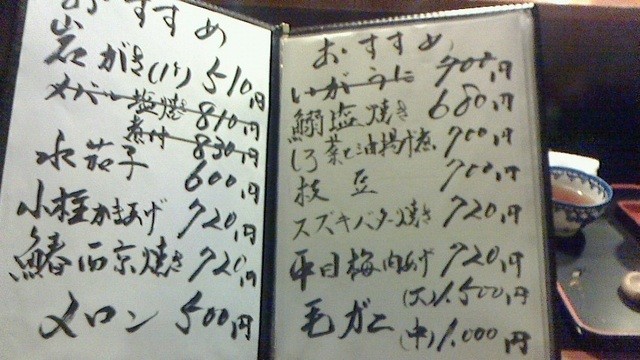 おすすめ
岩がき(1ケ) 510円
メバル塩焼き 810円
煮付 830円
水茄子 600円
小柱かきあげ 720円
鰆西京焼き 720円
メロン 500円
おすすめ
いがうに 900円
鰯塩焼き 680円
菜と油揚げ煮 700円
枝豆 700円
スズキバター焼き 720円
平目梅肉あげ 720円
(大) 1.500円
毛ガニ
(中) 1.000円